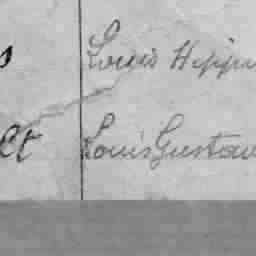 s Louis Hippo
lt Louis Gustav